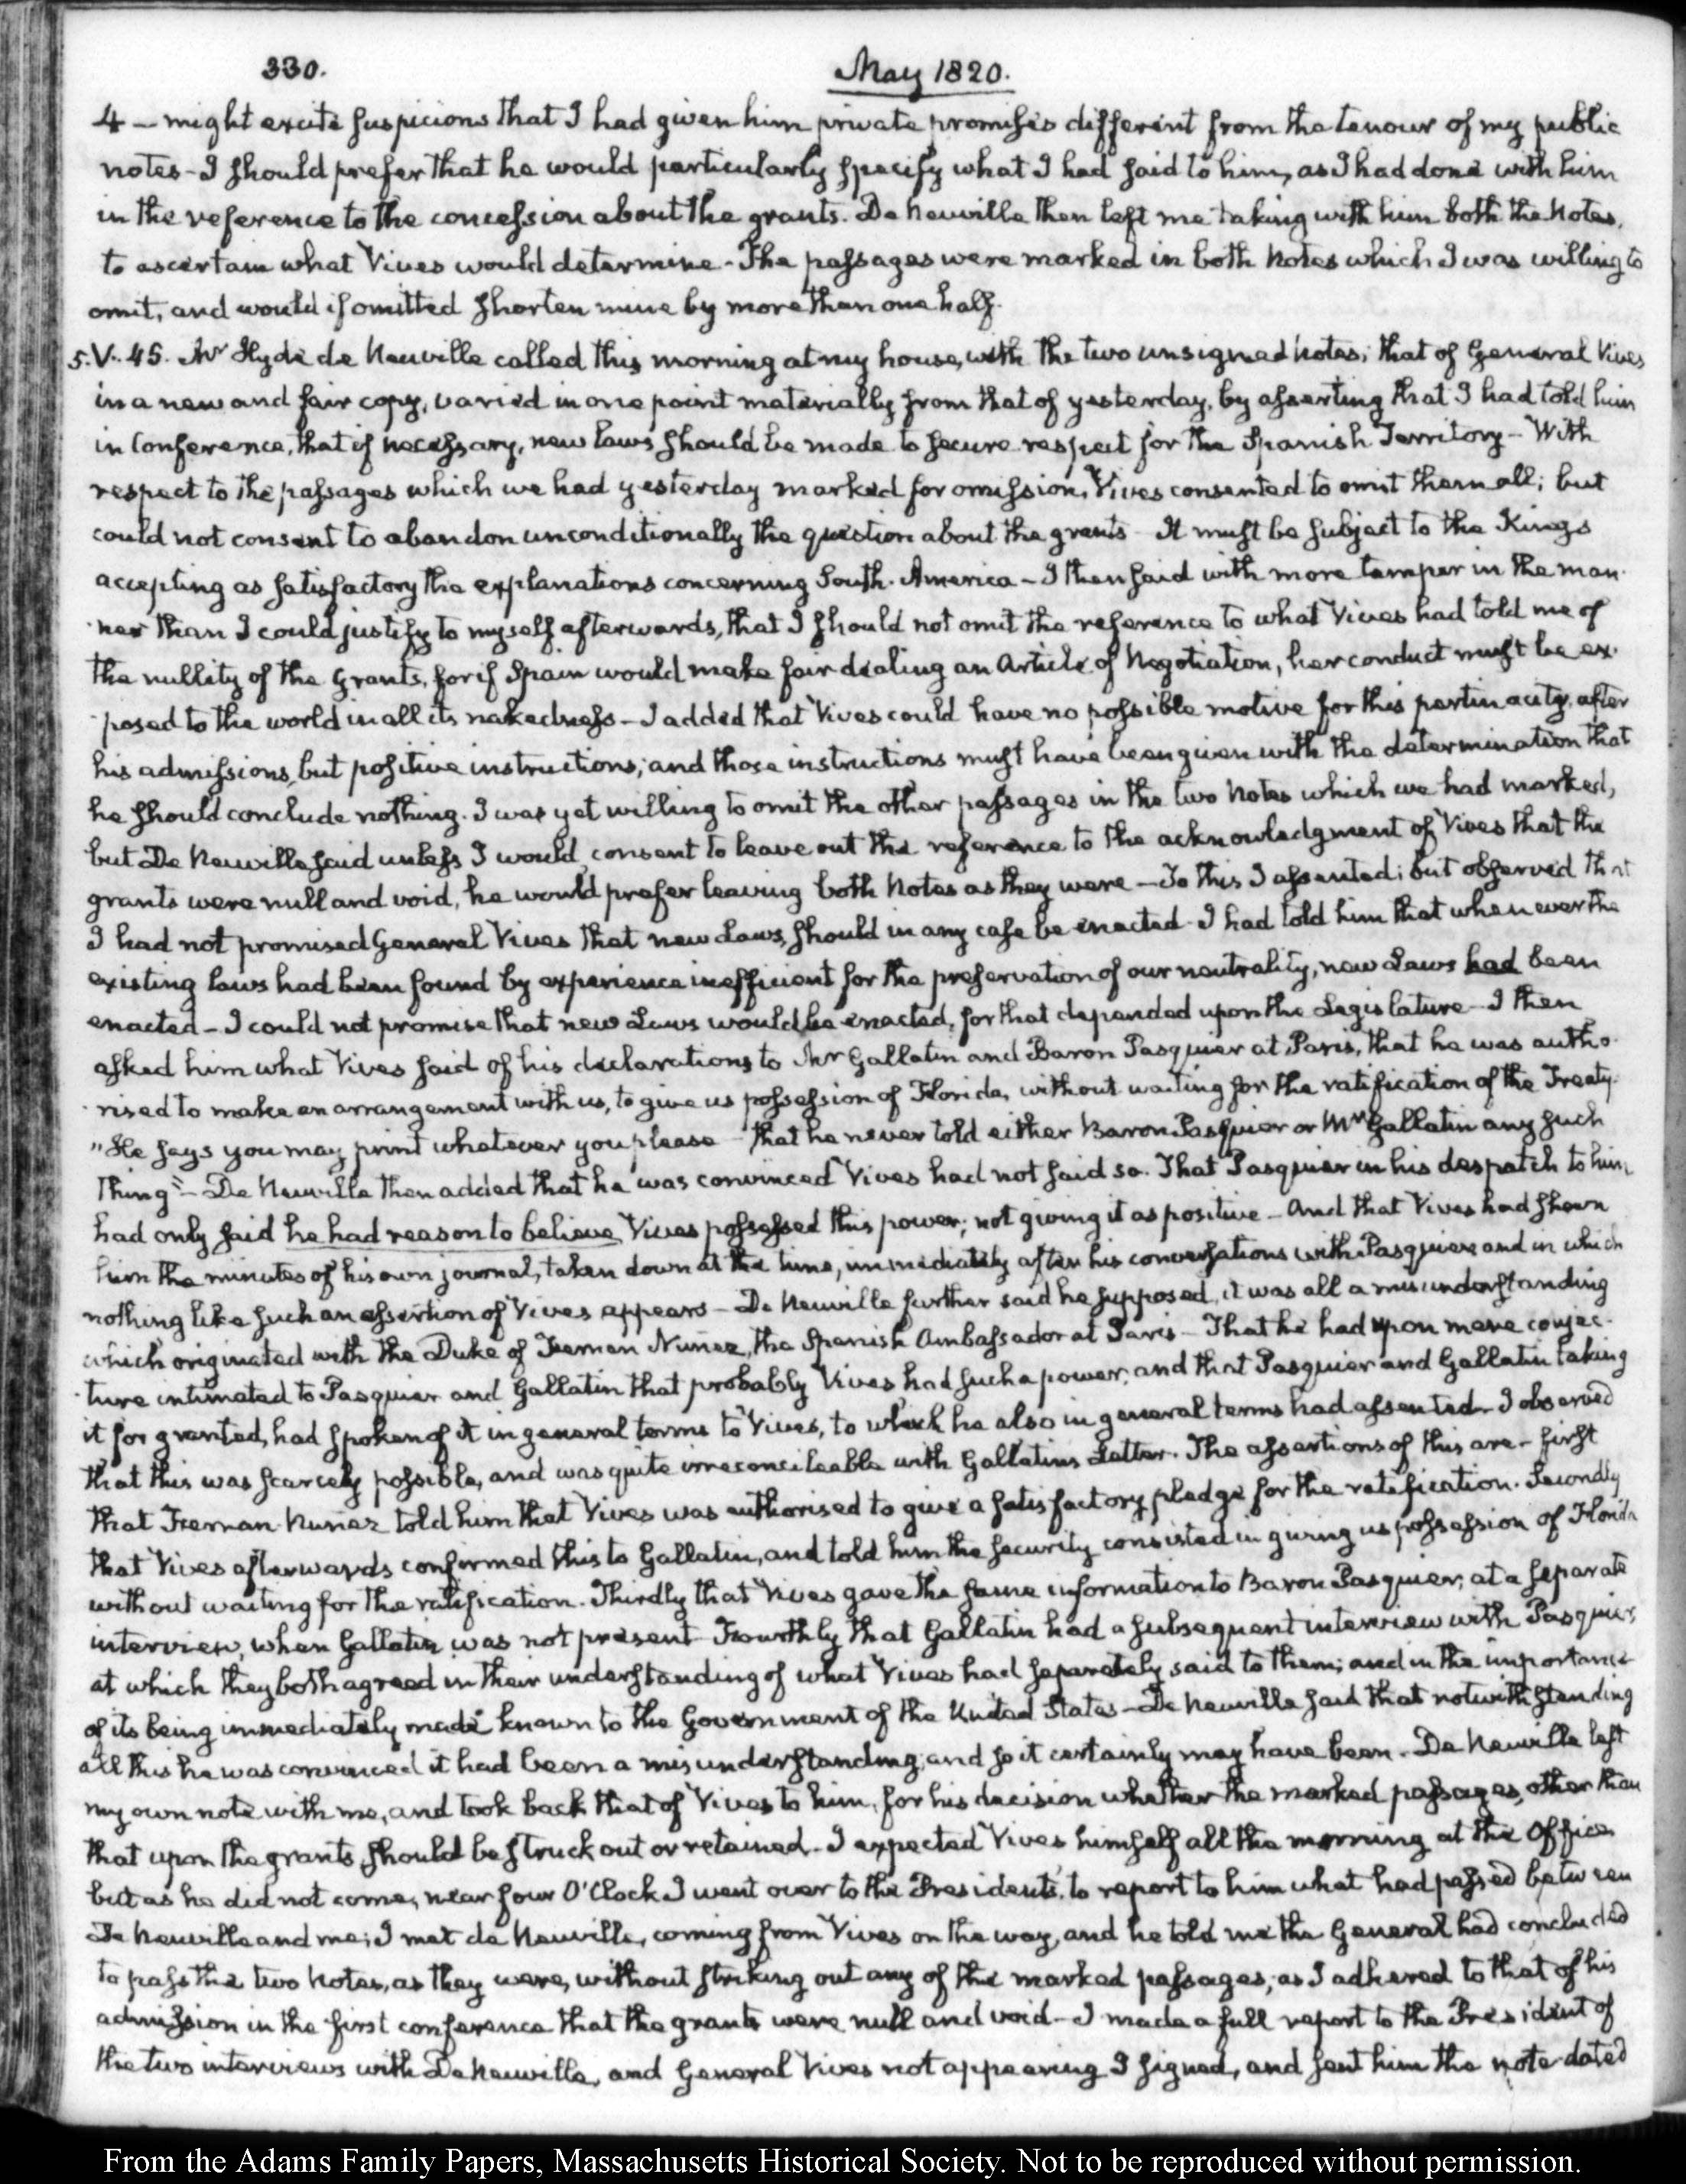 330.
May 1820.
4 — might excite suspicions that I had given him private promises different from the tenour of my public
notes - I should prefer that he would particularly specify what I had said to him, as I had done with him
in the reference to the concession about the grants. De Neuville then left me taking with him both the Notes,
to ascertain what Vives would determine - The passages were marked in both Notes which I was willing to
omit, and would if omitted shorten mine by more than one half.
5. V. 45. Mr Hyde de Neuville called this morning at my house, with the two unsigned Notes; that of General Vives
in a new and fair copy, varied in one point materially from that of yesterday, by asserting that I had told him
in Conference, that if necessary, new laws should be made to secure respect for the Spanish Territory - With
respect to the passages which we had yesterday marked for omission, Vives consented to omit them all; but
could not consent to abandon unconditionally the question about the grants - It must be subject to the Kings
accepting as satisfactory the explanations concerning South-America - I then said with more temper in the man-
-ner than I could justify to myself afterwards, that I should not omit the reference to what Vives had told me of
the nullity of the Grants, for if Spain would make fair dealing an Article of Negotiation, her conduct must be ex-
-posed to the world in all its nakedness - I added that Vives could have no possible motive for this pertinacity, after
his admissions, but positive instructions; and those instructions must have been given with the determination that
he should conclude nothing. I was yet willing to omit the other passages in the two Notes which we had marked,
but De Neuville said unless I would consent to leave out the reference to the acknowledgment of Vives that the
grants were null and void, he would prefer leaving both Notes as they were - To this I assented; but observed that
I had not promised General Vives that new Laws, should in any case be enacted - I had told him that whenever the
existing laws had been found by experience inefficient for the preservation of our neutrality, new Laws had been
enacted - I could not promise that new Laws would be enacted, for that depended upon the Legislature - I then
asked him what Vives said of his declarations to Mr Gallatin and Baron Pasquier at Paris, that he was autho-
-rised to make an arrangement with us, to give us possession of Florida, without waiting for the ratification of the Treaty.
"He says you may print whatever you please - that he never told either Baron Pasquier or Mr Gallatin any such
thing" - De Neuville then added that he was convinced Vives had not said so. That Pasquier in his despatch to him,
had only said he had reason to believe Vives possessed this power; not giving it as positive - And that Vives had shewn
him the minutes of his own journal, taken down at the time, immediately after his conversations with Pasquier and in which
nothing like such an assertion of Vives appears - De Neuville further said he supposed, it was all a misunderstanding
which originated with the Duke of Fernan Nuñez, the Spanish Ambassador at Paris - That he had upon mere conjec-
-ture intimated to Pasquier and Gallatin that probably Vives had such a power; and that Pasquier and Gallatin taking
it for granted, had spoken of it in general terms to Vives, to which he also in general terms had assented - I observed
that this was scarcely possible, and was quite irreconcileable with Gallatins Letter. The assertions of this are - first
that Fernan-Nuñez told him that Vives was authorised to give a satisfactory pledge for the ratification. Secondly
that Vives afterwards confirmed this to Gallatin, and told him the security consisted in giving us possession of Florida
without waiting for the ratification. Thirdly that Vives gave the same information to Baron Pasquier, at a separate
interview, when Gallatin was not present - Fourthly that Gallatin had a subsequent interview with Pasquier,
at which they both agreed in their understanding of what Vives had separately said to them; and in the importance
of its being immediately made known to the Government of the United States - De Neuville said that notwithstanding
all this he was convinced it had been a misunderstanding; and so it certainly may have been. De Neuville left
my own note with me, and took back that of Vives to him, for his decision whether the marked passages, other than
that upon the grants, should be struck out or retained - I expected Vives himself all the morning at the Office
but as he did not come, near four O'Clock I went over to the Presidents, to report to him what had passed between
De Neuville and me; I met de Neuville, coming from Vives on the way, and he told me the General had concluded
to pass the two Notes, as they were, without striking out any of the marked passages; as I adhered to that of his
admission in the first conference that the grants were null and void - I made a full report to the President of
the two interviews with De Neuville, and General Vives not appearing I signed, and sent him the note dated
From the Adams Family Papers, Massachusetts Historical Society. Not to be reproduced without permission.